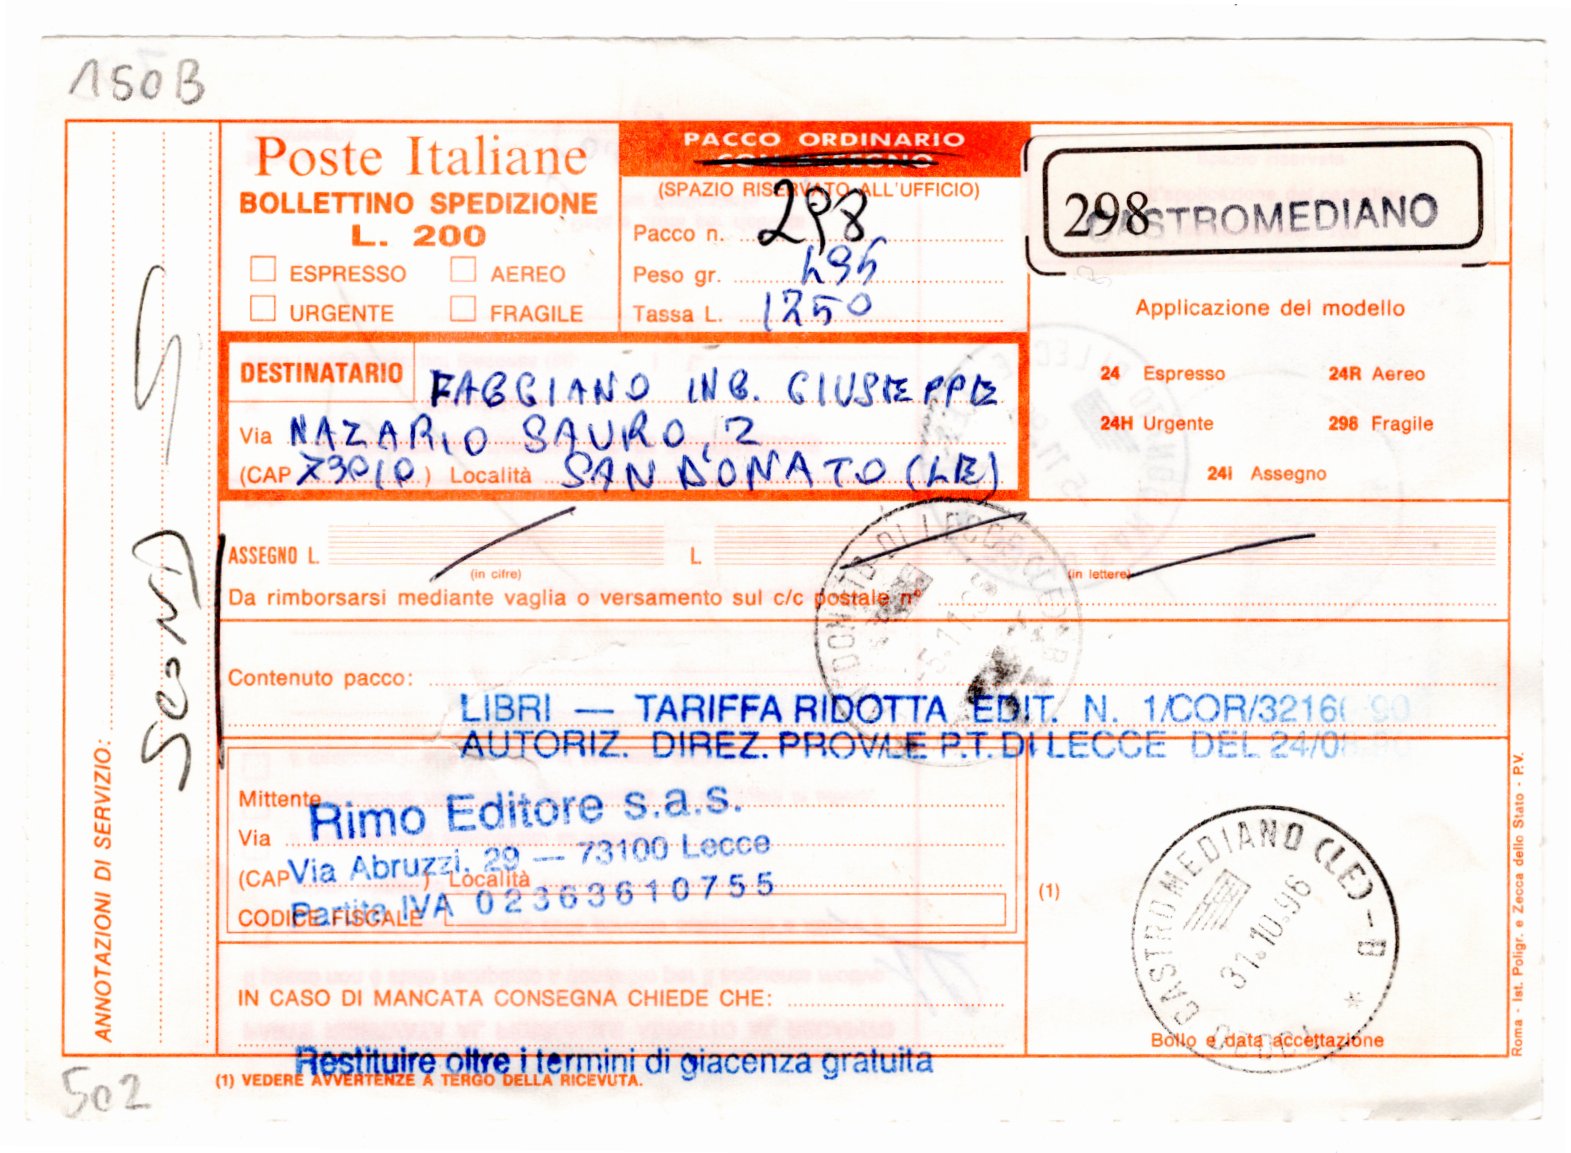 150B
Poste Italiane
BOLLETTINO SPEDIZIONE
L. 200
ESPRESSO
AEREO
URGENTE
FRAGILE
PACCO ORDINARIO
CON ASSEGNO
(SPAZIO RISERVATO ALL'UFFICIO)
Pacco n. 298
Peso gr. 495
Tassa L. 1250
298 CASTROMEDIANO
Applicazione del modello
24 Espresso
24R Aereo
24H Urgente
298 Fragile
24i Assegno
DESTINATARIO FAGGIANO ING. GIUSEPPE
Via NAZARIO SAURO, 2
(CAP 73010) Località SAN DONATO (LE)
ASSEGNO L.
L.
(in cifre)
(in lettere)
Da rimborsarsi mediante vaglia o versamento sul c/c postale n°
Contenuto pacco:
LIBRI — TARIFFA RIDOTTA EDIT. N. 1/COR/3216
AUTORIZ. DIREZ. PROV/LE P.T. DI LECCE DEL 24/0
Mittente Rimo Editore s.a.s.
Via
Via Abruzzi, 29 — 73100 Lecce
(CAP ) Località
Partita IVA 02363610755
CODICE FISCALE
(1)
CASTROMEDIANO (LE) - B
31.10.96
Bollo e data accettazione
IN CASO DI MANCATA CONSEGNA CHIEDE CHE:
Restituire oltre i termini di giacenza gratuita
(1) VEDERE AVVERTENZE A TERGO DELLA RICEVUTA.
502
ANNOTAZIONI DI SERVIZIO:
Roma - Ist. Poligr. e Zecca dello Stato - P.V.